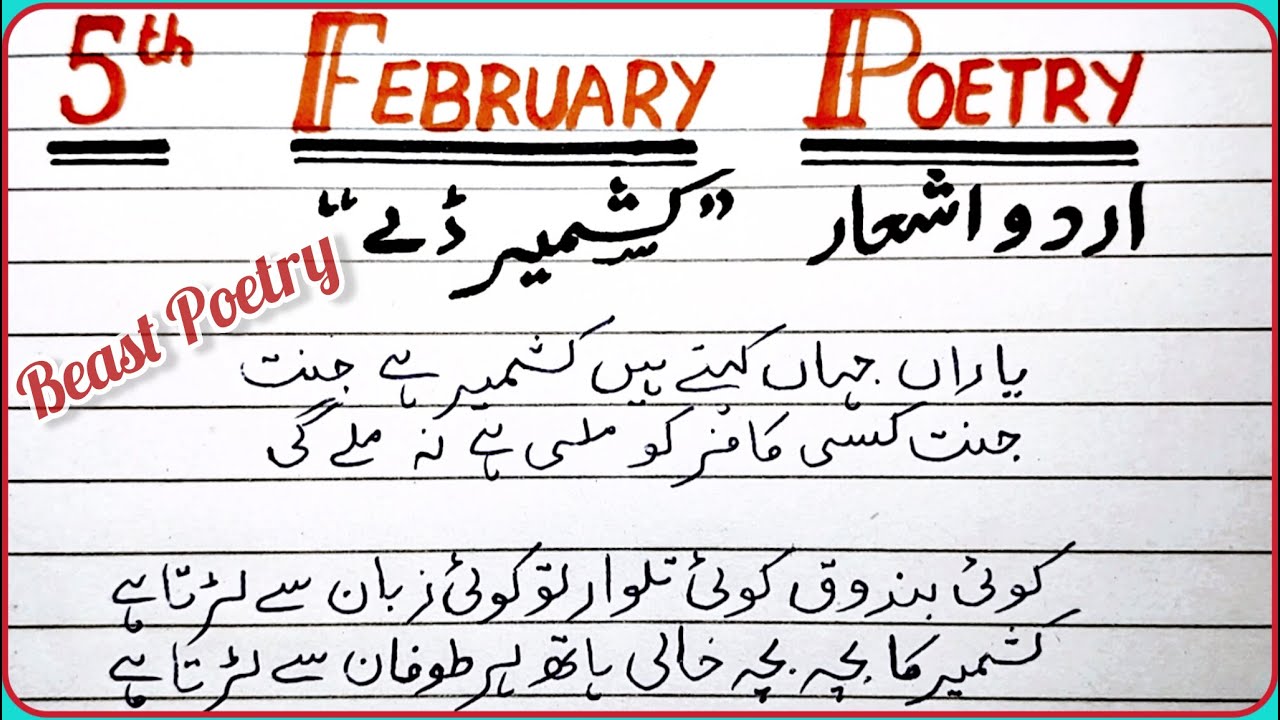 5th February Poetry
اردو اشعار "کشمیر ڈے"
Beast Poetry
یاراں جہاں کہتے ہیں کشمیر ہے جنت
جنت کسی کافر کو ملی ہے نہ ملے گی
کوئی بندوق کوئی تلوار تو کوئی زبان سے لڑتا ہے
کشمیر کا بچہ بچہ خالی ہاتھ ہر طوفان سے لڑتا ہے